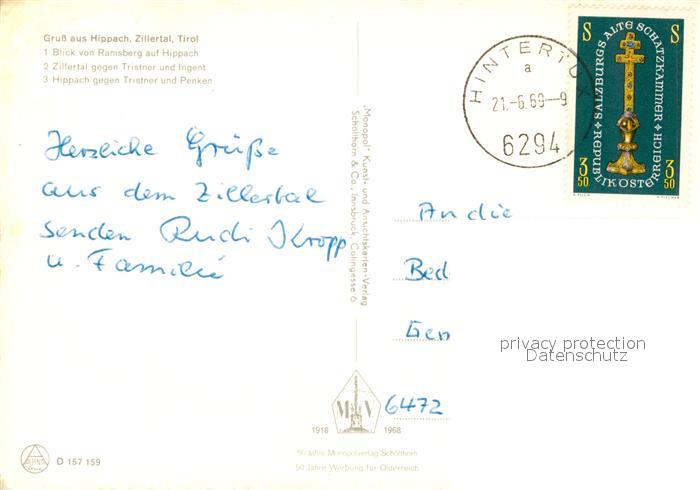 Gruß aus Hippach, Zillertal, Tirol
1 Blick von Ramsberg auf Hippach
2 Zillertal gegen Tristner und Ingent
3 Hippach gegen Tristner und Penken
Herzliche Grüße
aus dem Zillertal
senden Rudi Kropp
u. Familie
„Monopol" Kunst- und Ansichtskarten-Verlag
Schöllhorn & Co., Innsbruck, Colingasse 6
HINTERTUX
a
21.-6.69--9
6294
S S
REPUBLIK ÖSTERREICH ✶ SALZBURGS ALTE SCHATZKAMMER ✶
3 50 3 50
An die
Bed
Gem
privacy protection
Datenschutz
6472
M V
1918 1968
50 Jahre Monopolverlag Schöllhorn
50 Jahre Werbung für Österreich
D 157 159